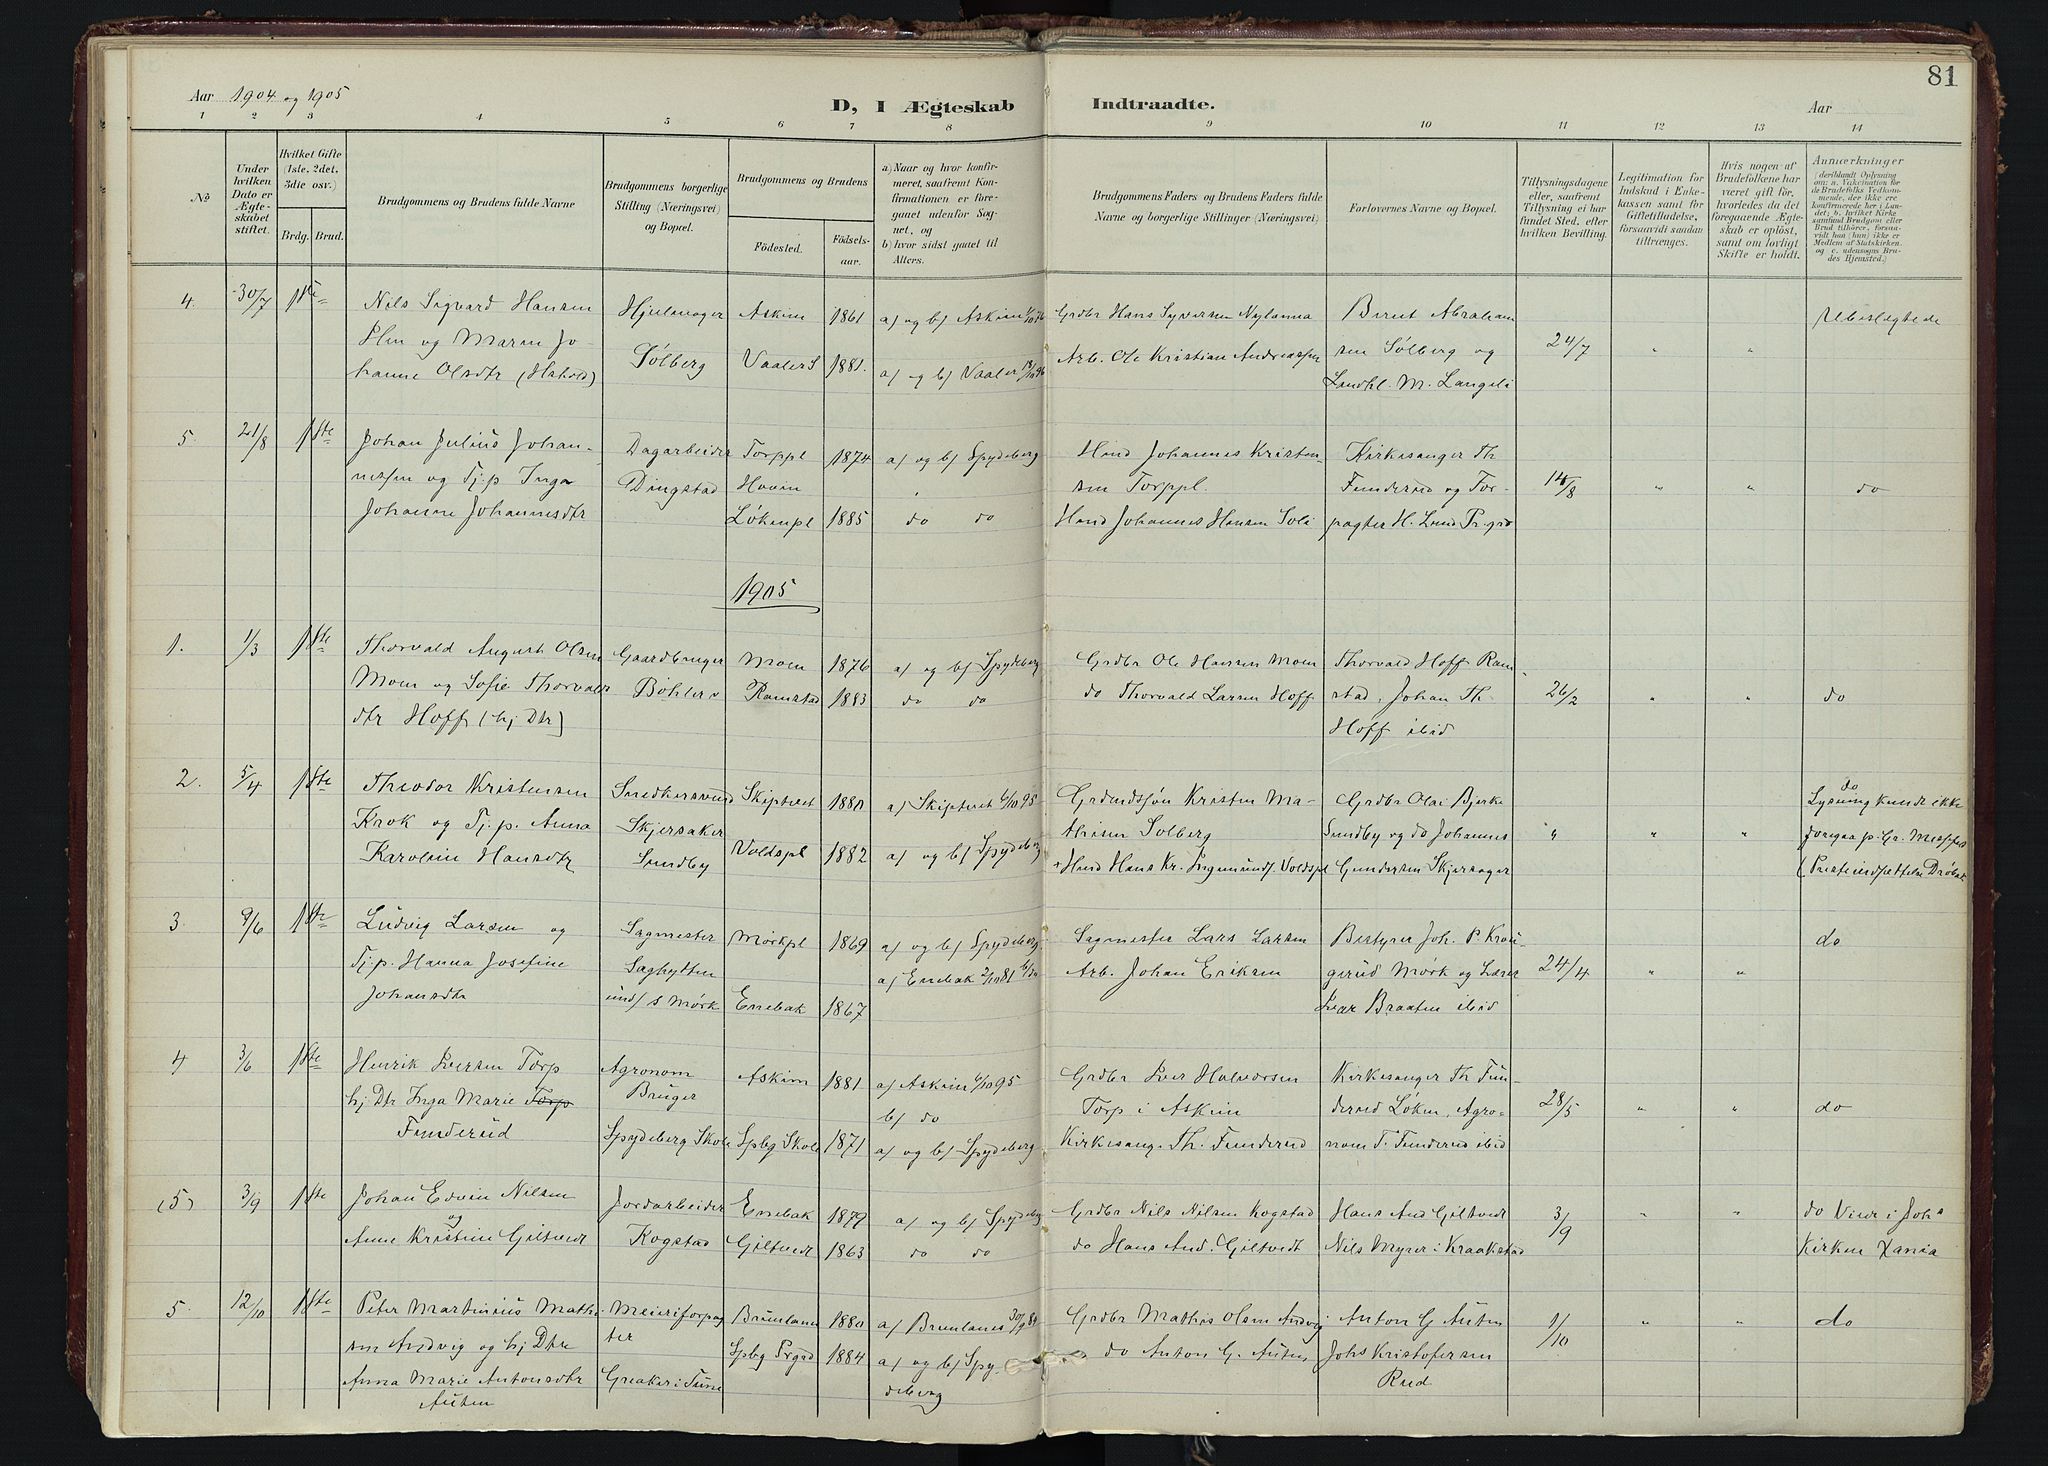 81
Aar 1904 og 1905
D, I Ægteskab Indtraadte.
Aar
1 2 3 4 5 6 7 8 9 10 11 12 13 14
No
Under hvilken Dato er Ægteskabet stiftet.
Hvilket Gifte (1ste, 2det, 3die osv.)
Brdg. Brud.
Brudgommens og Brudens fulde Navne
Brudgommens borgerlige Stilling (Næringsvei) og Bopæl.
Brudgommens og Brudens
Födested. Födselsaar.
a) Naar og hvor konfirmeret, saafremt Konfirmationen er foregaaet udenfor Sognet, og b) hvor sidst gaaet til Alters.
Brudgommens Faders og Brudens Faders fulde Navne og borgerlige Stillinger (Næringsvei)
Forlovernes Navne og Bopæl.
Tillysningsdagene eller, saafremt Tillysning ei har fundet Sted, efter hvilken Bevilling.
Legitimation for Indskud i Enkekassen samt for Giftetilladelse, forsaavidt saadan tiltrænges.
Hvis nogen af Brudefolkene har været gift för, hvorledes da det foregaaende Ægteskab er oplöst, samt om lovligt Skifte er holdt.
Anmerkninger (deriblandt Oplysning om: a. Vakcination for de Brudefolks Vedkommende, der ikke ere konfirmerede her i Landet; b. hvilket Kirkesamfund Brudgom eller Brud tilhörer, forsaavidt han (hun) ikke er Medlem af Statskirken, og c. udensogns Brudes Hjemsted.)
4. 30/7 1ste Nils Sigvard Hansen Hjulmager Askim 1861 a) og b) Askim Grdbr Hans Syversen Nylanna Bernt Abraham 24/7 " " Ubeslægtede
Hm og Maren Jo- Sölberg Vaaler S 1881. a) og b) Vaaler Arb. Ole Kristian Andreassen sen Sölberg og
hanne Olsdtr Landhl. M. Langeli
5. 21/8 1ste Johan Julius Johan- Dagarbeider Torppl 1874 a) og b) Spydeberg Hmd Johannes Kristen- Kirkesanger Th 14/8 " " do
nessen og Tj.p Inga Dingstad Hovin sen Torppl. Funderud og For-
Johanne Johannesdtr Lökenpl 1885 do do Hmd Johannes Hansen Soli pagter H. Lund Pr.grd
1905
1. 1/3 1ste Thorvald August Olsen Gaardbruger Moen 1876 a) og b) Spydeberg Grdbr Ole Hansen Moen Thorvald Hoff Ram 26/2 " " do
Moen og Sofie Thorvalds Böhler Ramstad 1883 do do do Thorvald Larsen Hoff stad, Johan Th.
dtr Hoff (hj Dtr) Hoff ibid
2. 5/4 1ste Theodor Kristensen Snedkersvend Skiptvet 1880 a) Skiptvet 6/10 95 Grdmdsjön Kristen Ma- Grdbr Olai Bjerke " " " do
Krok og Tj.p. Anna Skjersaker Voldspl 1882 a) og b) Spydeberg thisen Solberg Sundby og do Johannes Lysning kunde ikke
Karoline Hansdtr Sundby Hmd Hans Kr. Ingemunds. Voldspl Gundersen Skjersager foregaa p. Gr. Messefr
3. 9/6 1ste Ludvig Larsen og Sagmester Mörkpl 1869 a) og b) Spydeberg. Sagmester Lars Larsen Bestyrer Joh. P. Krou- 24/4 " " do
Tj.p. Hanna Josefine Saghytten a) Enebak 2/10 81 Arb. Johan Eriksen gerud Mörk og Lærer
Johansdtr und/ s Mörk Enebak 1867 Ivar Braaten ibid
4 3/6 1ste Henrik Iversen Torp Agronom Askim 1881 a) Askim 6/10 95 Grdbr Iver Halvorsen Kirkesanger Th Fun- 28/5 " " do
hj Dtr Inga Marie Torp Bruger b) do Torp i Askim derud Löken, Agro-
Funderud Spydeberg Skole Spbg Skole 1871 a) og b) Spydeberg Kirkesang. Th. Funderud nom T. Funderud ibid
(5) 3/9 1ste Johan Edvin Nilsen Jordarbeider Enebak 1879 a) og b) Spydeberg Grdbr Nils Nilsen Kogstad Hans And Giltvedt 3/9 " " do Viede i Johs
og
Anne Kristine Giltvedt Kogstad Giltvedt 1863 do do do Hans And. Giltvedt Nils Myrer i Kraakstad Kirken Xania
5. 12/10 1ste Peter Martinius Mathi- Meieriforpag Brunlanes 1880 a) Brunlanes Grdbr Mathis Olsen Andvig Anton G Auten 1/10 " " do
sen Andvig og hj Dtr ter Spbg Prgrd 1884 a) og b) Spy- do Anton G. Auten Johs Kristofersen
Anna Marie Antonsdtr Greaker i Tune deberg Rud
Auten